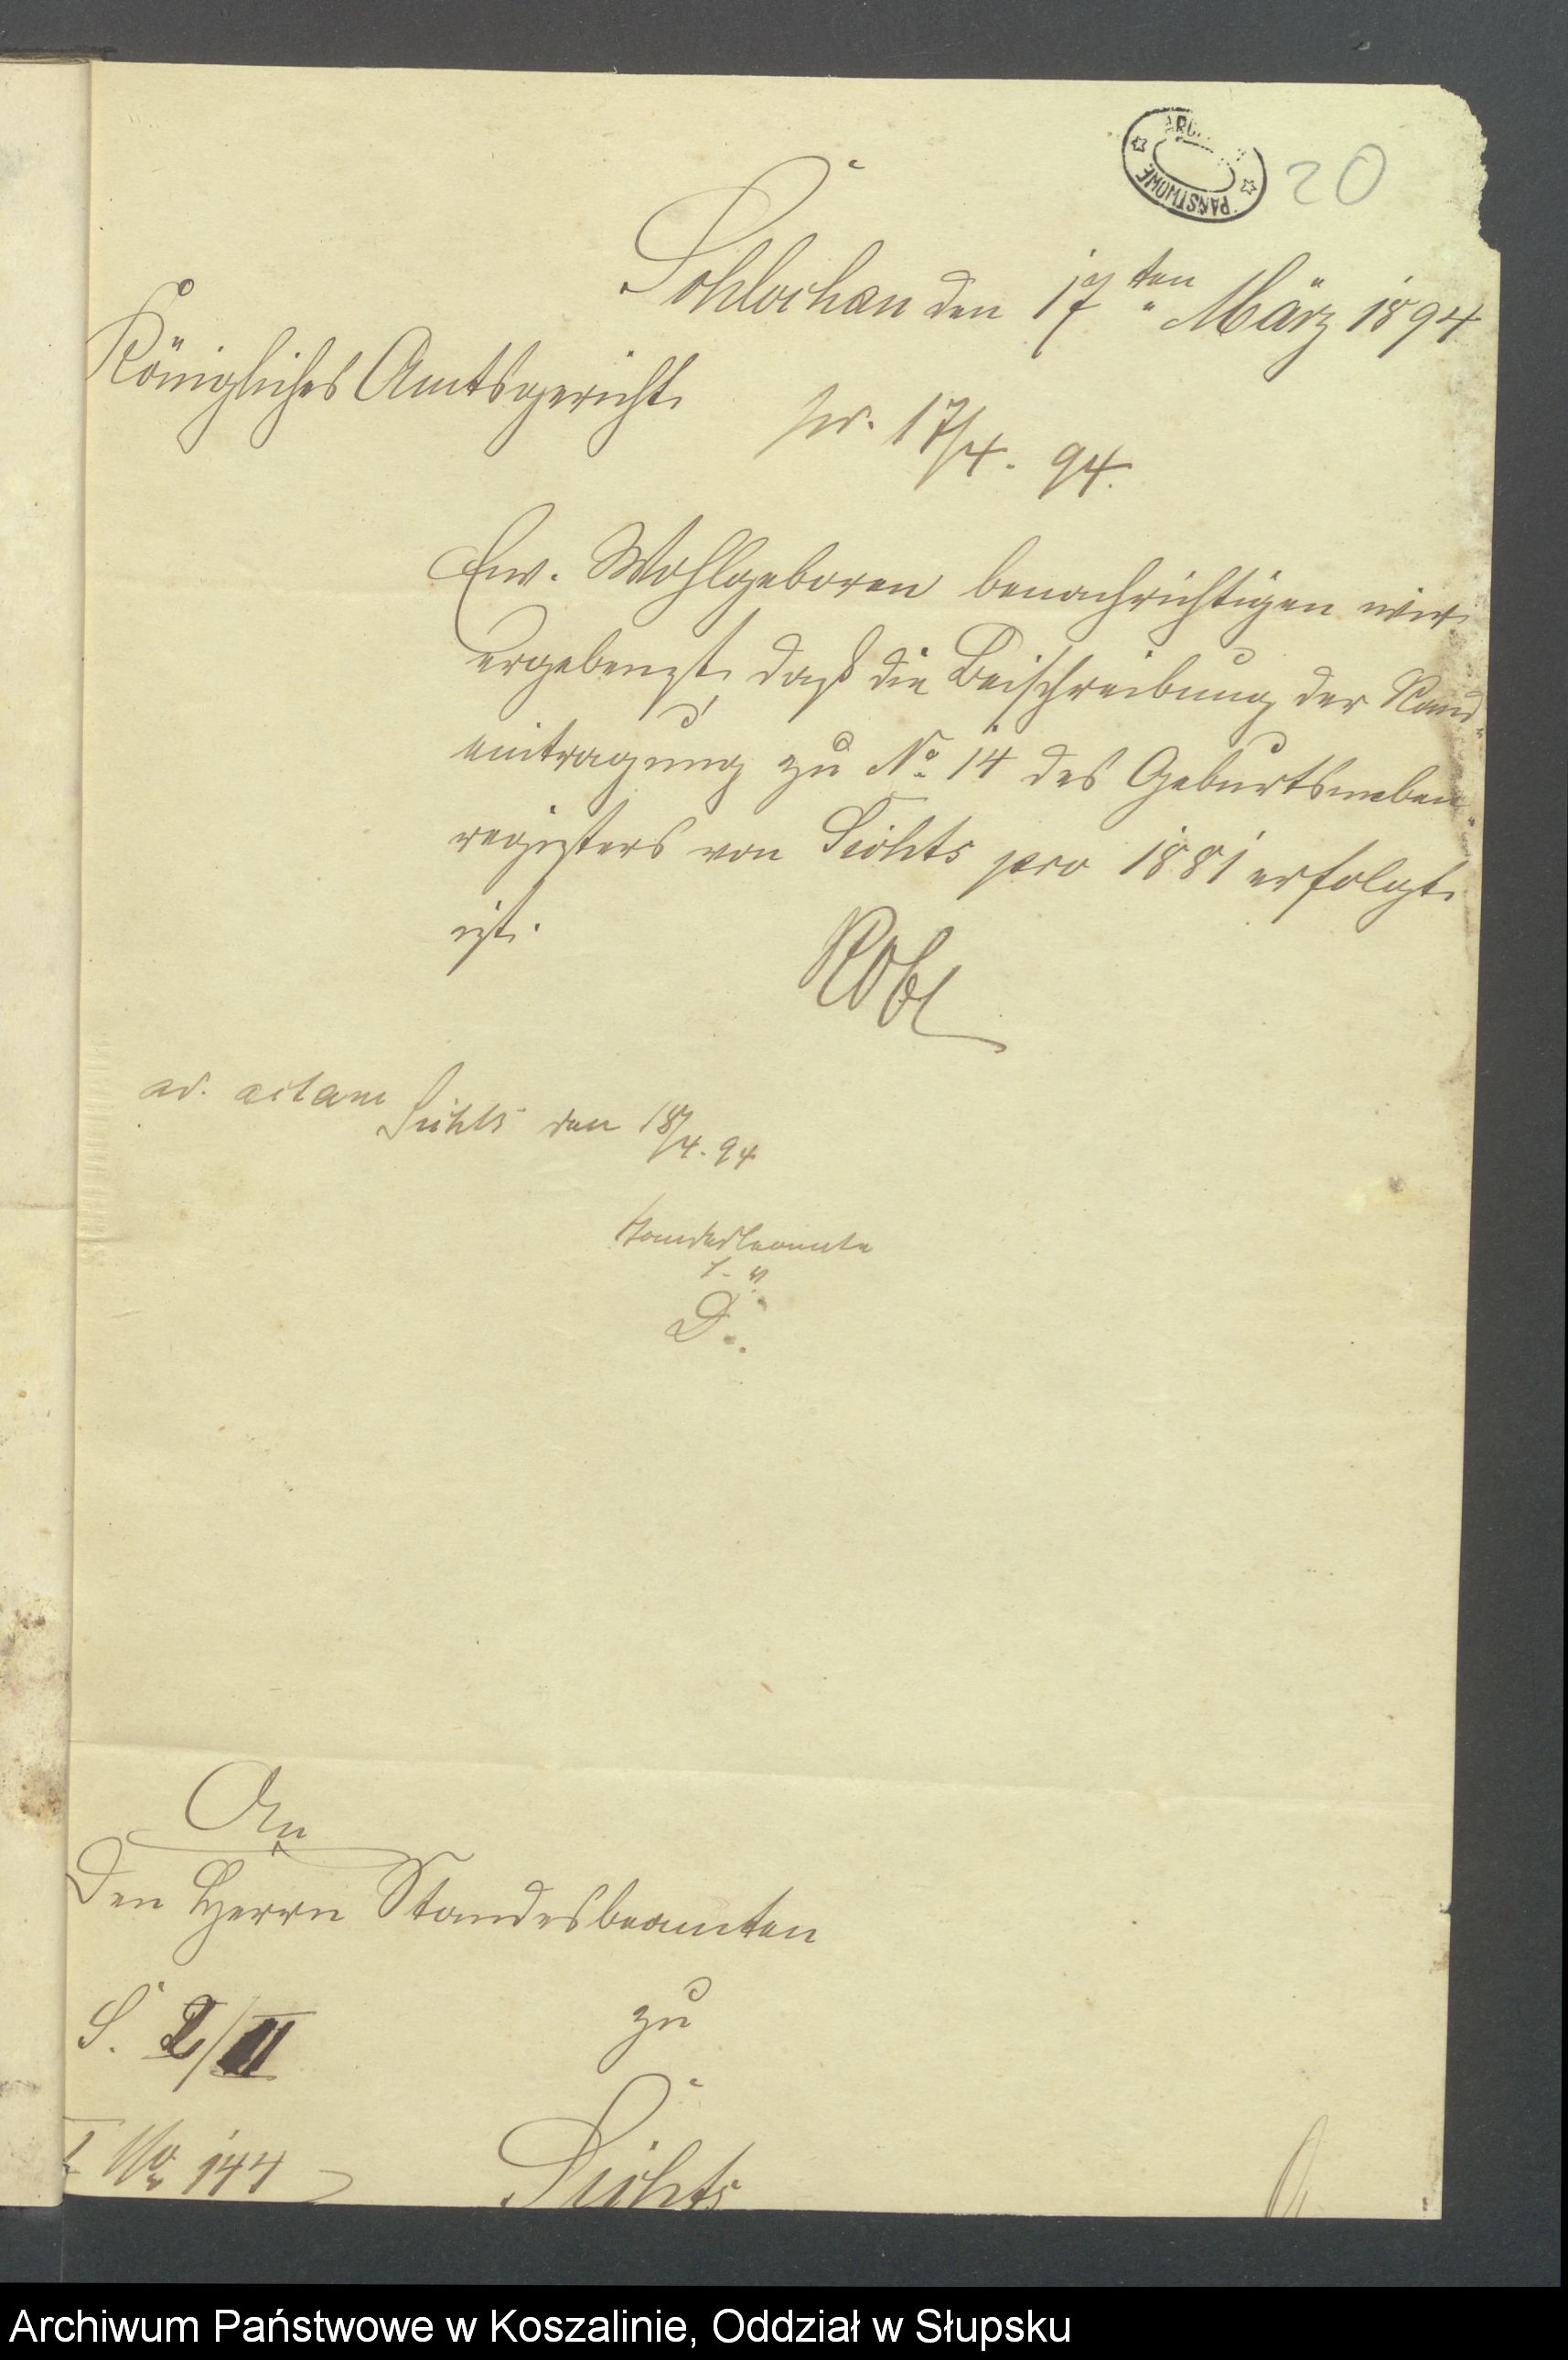 ARCHIWUM PAŃSTWOWE
20
Schlochau den 17ten März 1894
Königliches Amtsgericht
pr. 17/4. 94.
Ew. Wohlgeboren benachrichtigen wir
ergebenst, daß die Beischreibung der Rand„
eintragung zu No 14 des Geburtsneben„
registers von Sichts pro 1881 erfolgt
ist.
ad. actam
Sichts den 18/4. 94
Standesbeamte
D.
An
Den Herrn Standesbeamten
S. 2/II
zu
No 144
Sichts
Archiwum Państwowe w Koszalinie, Oddział w Słupsku